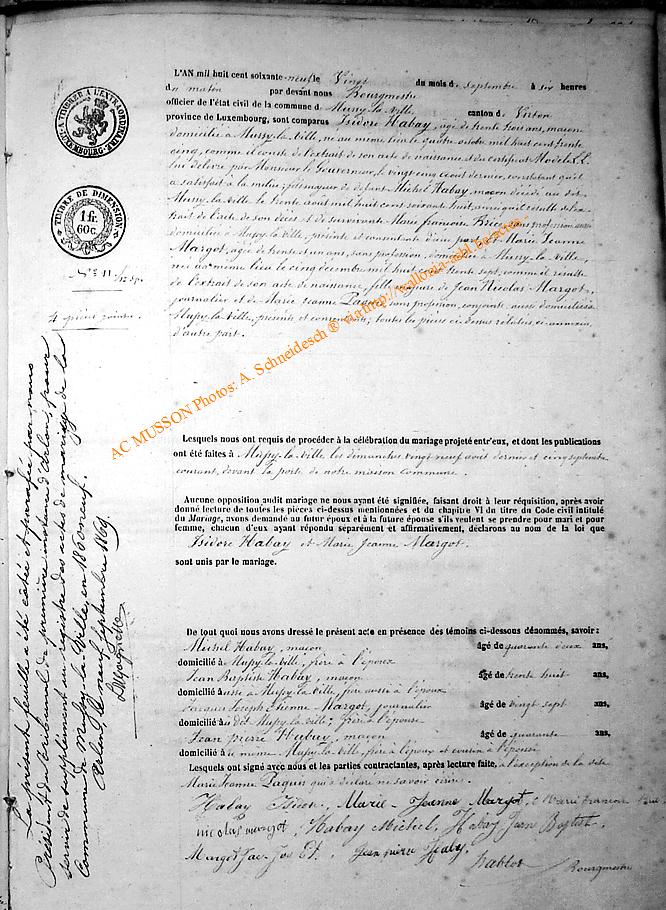 TIMBRE A L'EXTRAORDINAIRE
LUXEMBOURG
TIMBRE DE DIMENSION
1 fr.
60 c.
N° 11
4 pièces jointes.
La présente feuille a été cotée et paraphée par nous
Président du tribunal de première instance d'Arlon, pour
servir de supplément au registre des actes de mariage de la
Commune de Mussy-la-Ville en 1800 neuf.
Arlon, le neuf septembre 1869
L'AN mil huit cent soixante-neuf le Vingt du mois de septembre à six heures
du matin par devant nous Bourgmestre
officier de l'état civil de la commune de Mussy-la-Ville canton de Virton
province de Luxembourg, sont comparus Isidore Habay, âgé de trente trois ans, maçon
domicilié à Mussy-la-Ville, né au même lieu le quatre octobre mil huit cent trente
cinq, comme il conste de l'extrait de son acte de naissance et du certificat Modèle
lui délivré par Monsieur le Gouverneur, le vingt cinq août dernier, constatant qu'il
a satisfait à la milice; fils majeur de défunt Michel Habay, maçon décédé au dit
Mussy-la-Ville le trente août mil huit cent soixante huit, ainsi qu'il résulte de l'ex-
trait de l'acte de son décès et de survivante Marie françoise Brice, sans profession, aussi
domiciliée à Mussy-la-Ville, présente et consentante d'une part; et Marie Jeanne
Margot, âgée de trente et un ans, sans profession, domiciliée à Mussy-la-Ville,
née au même lieu le cinq décembre mil huit cent trente sept, comme il résulte
de l'extrait de son acte de naissance, fille majeure de Jean Nicolas Margot,
journalier et de Marie Jeanne Paquin sans profession, conjoints, aussi domiciliés à
Mussy-la-Ville, présents et consentants; toutes les pièces ci-dessus relatées ci-annexées
d'autre part.
AC MUSSON Photos: A. Schneidesch ® via http://wallonia-asbl.be-actes -
Lesquels nous ont requis de procéder à la célébration du mariage projeté entr'eux, et dont les publications
ont été faites à Mussy-la-Ville les dimanches vingt neuf août dernier et cinq septembre
courant, devant la porte de notre maison Commune.
Aucune opposition audit mariage ne nous ayant été signifiée, faisant droit à leur réquisition, après avoir
donné lecture de toutes les pièces ci-dessus mentionnées et du chapitre VI du titre du Code civil intitulé
du Mariage, avons demandé au futur époux et à la future épouse s'ils veulent se prendre pour mari et pour
femme, chacun d'eux ayant répondu séparément et affirmativement, déclarons au nom de la loi que
Isidore Habay et Marie Jeanne Margot.
sont unis par le mariage.
De tout quoi nous avons dressé le présent acte en présence des témoins ci-dessous dénommés, savoir:
Michel Habay, maçon âgé de quarante deux ans,
domicilié à Mussy-la-Ville, frère à l'époux
Jean Baptiste Habay, maçon âgé de trente huit ans,
domicilié aussi à Mussy-la-Ville, frère aussi à l'époux
Jacques Joseph Etienne Margot, journalier âgé de vingt sept ans,
domicilié au dit Mussy-la-Ville; frère à l'épouse
Jean pierre Habay, maçon âgé de quarante ans,
domicilié au même Mussy-la-Ville, frère à l'époux et cousin à l'épouse
Lesquels ont signé avec nous et les parties contractantes, après lecture faite, à l'exception de la dite
Marie Jeanne Paquin qui a déclaré ne savoir écrire.
Habay Isidore, Marie-Jeanne Margot, Marie françoise Brice
nicolas margot, Habay Michel, Habay Jean Baptist.
Margot Jac-Jos Et. Jean pierre Habay
Bourgmestre